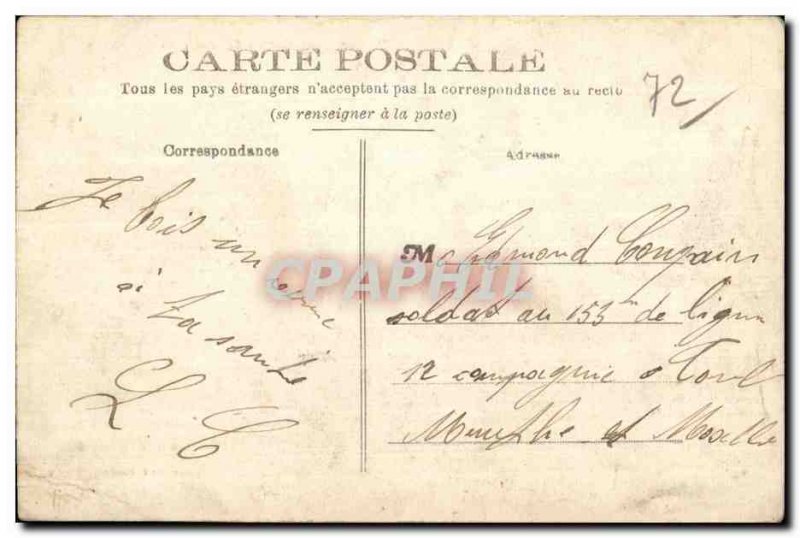 CARTE POSTALE
Tous les pays étrangers n'acceptent pas la correspondance au recto
(se renseigner à la poste)
72
Correspondance
Adresse
Je bois un verre
à ta santé
L C
M Edmond
soldat au 155 de ligne
12 compagnie a Toul
Meurthe et Moselle
CPAPHIL